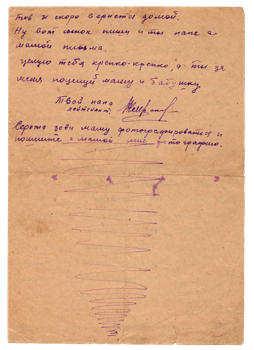 тов и скоро вернется домой.
Ну вот сынок пиши и ты папе с
мамой письма.
целую тебя крепко-крепко, а ты за
меня поцелуй маму и бабушку
Твой папа
лейтенант
Сережа зови маму фотографироваться и
пошлите с мамой мне фотографию.